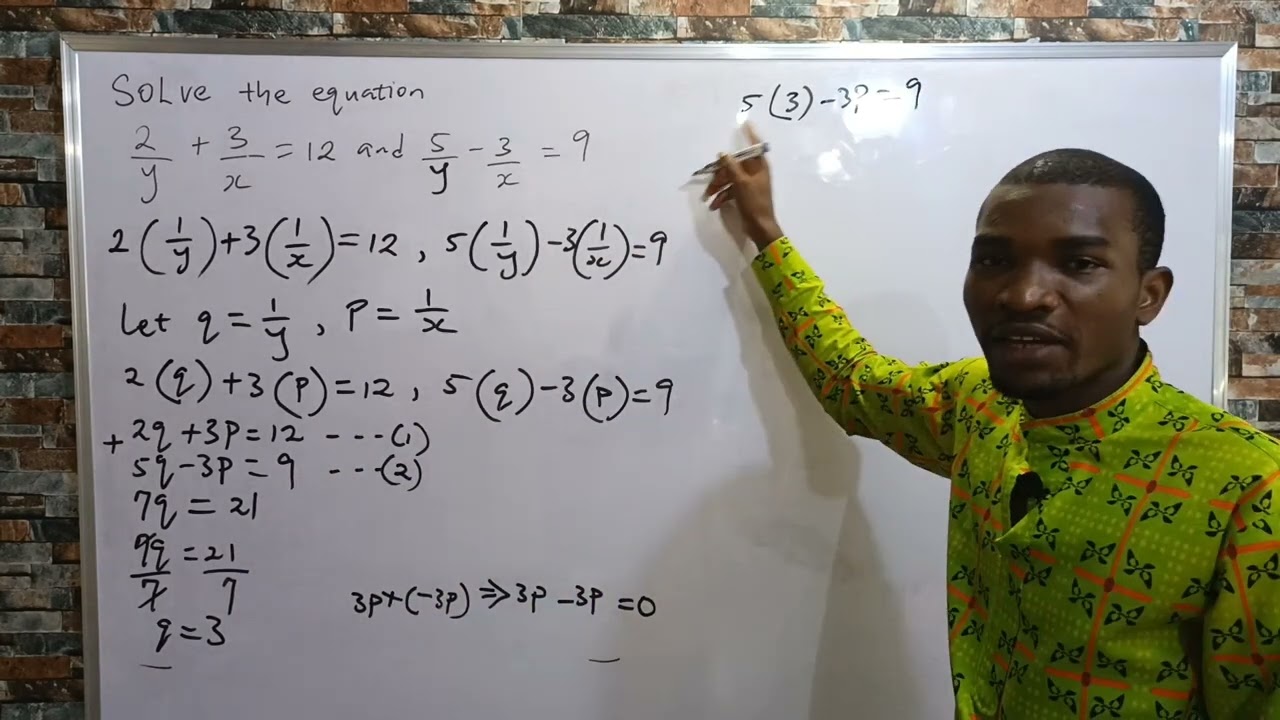 Solve the equation
2/y + 3/x = 12 and 5/y - 3/x = 9
2(1/y) + 3(1/x) = 12 , 5(1/y) - 3(1/x) = 9
Let q = 1/y , P = 1/x
2(q) + 3(P) = 12 , 5(q) - 3(P) = 9
+ 2q + 3P = 12 ---(1)
5q - 3P = 9 ---(2)
7q = 21
7q/7 = 21/7
q = 3
3P + (-3P) ⇒ 3P - 3P = 0
5(3) - 3P = 9